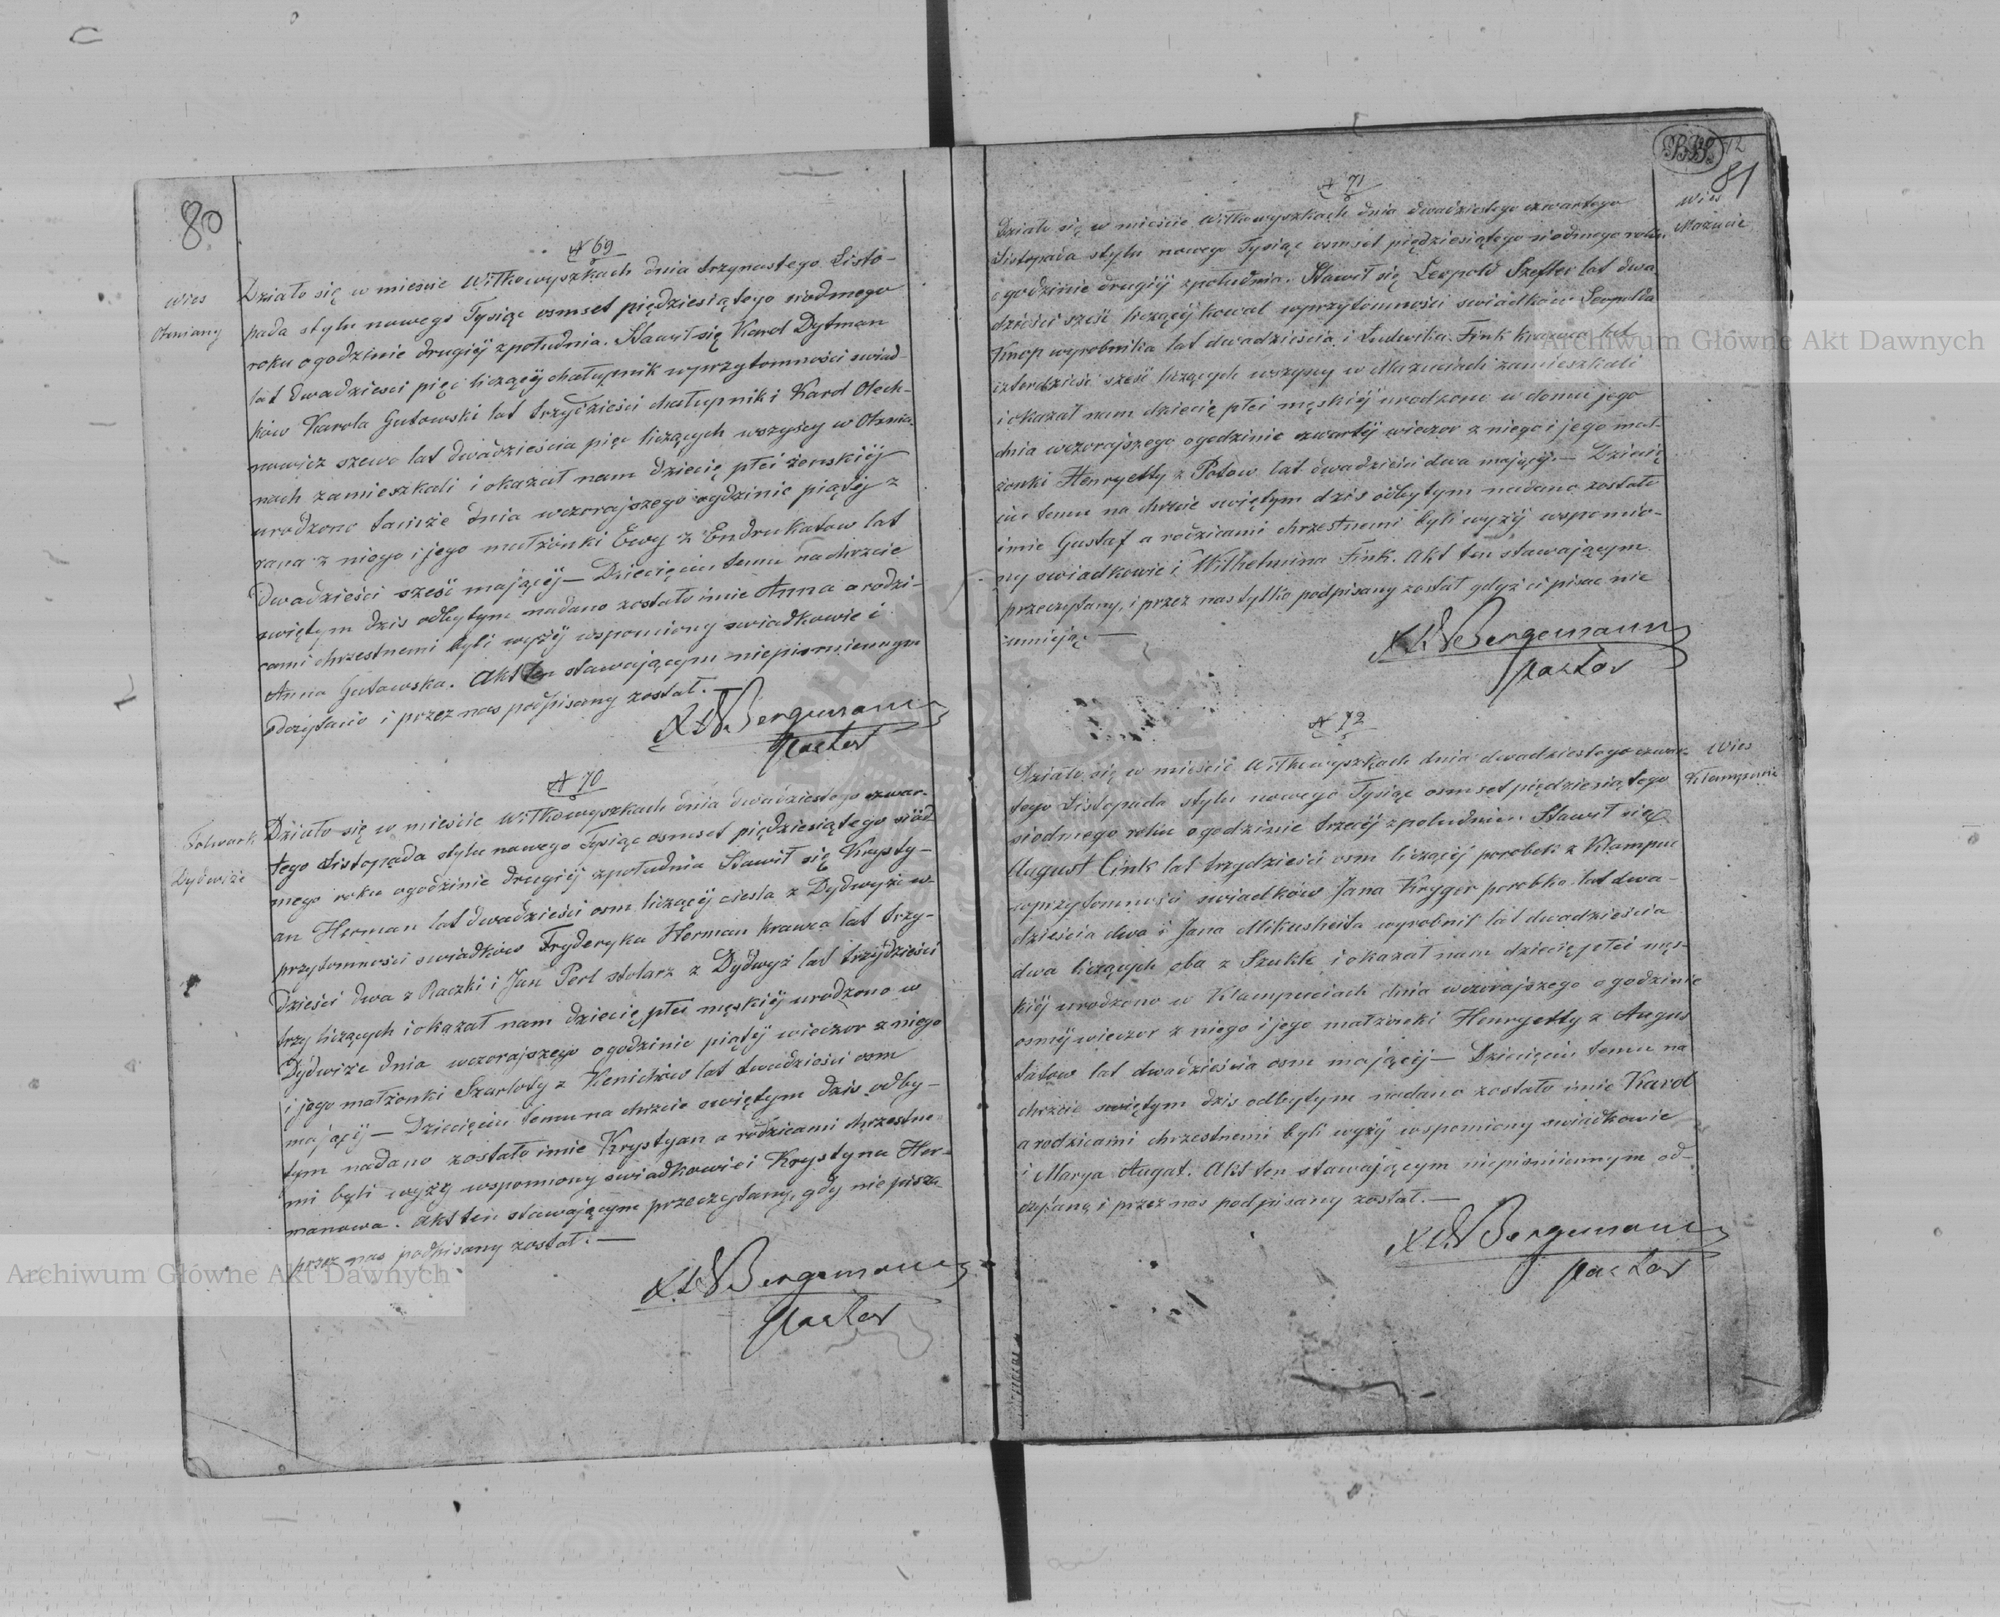 80
N 69
wies
Ożniany
Działo się w mieście Wiłkowyszkach dnia trzynastego Listo-
pada stylu nowego Tysiąc osmset pięđziesiątego siodmego
roku o godzinie drugiéj z południa. Stawił się Karol Dytman
lat dwadziesci pięć liczący chałupnik w przytomności swiad-
ków Karola Gutowski lat trzydzieści chałupnik i Karol Olech-
nowicz szewc lat dwadzieścia pięc liczących wszyscy w
nach zamieszkali i okazał nam dziecię płci żenskiéj
urodzone tamże dnia wczorajszego o godzinie piątéj z
rana z niego i jego małżonki Ewy z Endrukatow lat
dwadzieści szesć mającéj — Dziecięciu temu na chrzcie
swiętym dzis odbytym nadano zostało imie Anna a rodzi-
cami chrzestnemi byli wyżéj wspomiony swiadkowie i
Anna Gutowska. Akt ten stawającym niepismiennym
odczytano i przez nas podpisany został. —
Bergemann
Pastor
N 70
Folwark
Dydwiże
Działo się w mieście Wiłkowyszkach dnia dwadziestego czwar-
tego Listopada stylu nowego Tysiąc osmset pięđziesiątego siód-
mego roku o godzinie drugiéj z południa Stawił się Krysty-
an Herman lat dwadzieści osm liczącéj ciesla z Dydwyż w
przytomności swiadków Fryderyka Herman krawca lat trzy-
dzieści dwa z Raczki i Jan Perl stolarz z Dydwyż lat trzydzieści
trzy liczących i okazał nam dziecię płci męskiéj urodzono w
Dydwiże dnia wczorajszego o godzinie piątéj wieczor z niego
i jego małżonki Szarloty z Kenichów lat dwadzieści osm
mającéj — Dziecięciu temu na chrzcie swiętym dzis odby-
tym nadano zostało imie Krystyan a rodzicami chrzestne
mi byli wyżéj wspomiony swiadkowie i Krystyna Her-
manowa. Akt ten stawającym przeczytany, gdy nie pisza
przez nas podpisany został. —
Bergemann
Pastor
72
81
N 71
wies
Mażucie
Działo się w mieście Wiłkowyszkach dnia dwadziestego czwartego
Listopada stylu nowego Tysiąc osmset pięđziesiątego siodmego roku
o godzinie drugiéj z południa. Stawił się Leopold Szefler lat dwa
dzieści sześć liczącéj kowal w przytomności swiadków Leopolda
Knop wyrobnika lat dwadzieścia i Ludwika Fink krawca lat
czterdzieści sześć liczących wszyscy w Mażuciach zamieszkali
i okazał nam dziecię płci męskiéj urodzone w domu jego
dnia wczorajszego o godzinie czwartéj wieczor z niego i jego mał-
żonki Henryetty z Potow lat dwadzieści dwa mającéj. — Dziecię
ciu temu na chrzcie swiętym dzis odbytym nadano zostało
imie Gustaf a rodzicami chrzestnemi byli wyżéj wspomio-
ny swiadkowie i Wilhelmina Fink. Akt ten stawającym
przeczytany, i przez nas tylko podpisany został gdyż ci pisac nie
umieją —
Bergemann
Pastor
N 72
Wies
Klampucie
Działo się w mieście Wiłkowyszkach dnia dwadziestego czwar-
tego Listopada stylu nowego Tysiąc osmset pięđziesiątego
siodmego roku o godzinie trzeciéj z południa. Stawił się
August Cink lat trzydzieści osm liczącéj parobek z Klampuc
w przytomności swiadków Jana Kryger parobka lat dwa-
dzieścia dwa i Jana Mikusheita wyrobnik lat dwadzieścia
dwa liczących oba z Szukle i okazał nam dziecię płci męs-
kiéj urodzono w Klampuciach dnia wczorajszego o godzinie
osméj wieczor z niego i jego małżonki Henryetty z Augus
tatow lat dwadzieścia osm mającéj — Dziecięciu temu na
chrzcie swiętym dzis odbytym nadano zostało imie Karol
a rodzicami chrzestnemi byli wyżéj wspomiony swiadkowie
i Marya Augat. Akt ten stawającym niepismiennym od-
czytany i przez nas podpisany został. —
Bergemann
Pastor
Archiwum Główne Akt Dawnych
Archiwum Główne Akt Dawnych